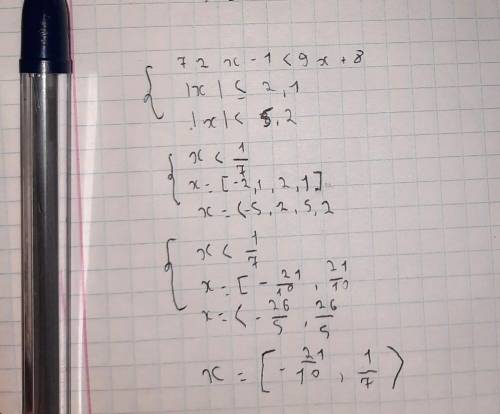 72x - 1 < 9x + 8
|x| ≤ 2,1
|x| < 5,2
x < 1/7
x = [-2,1, 2,1]
x = <-5,2, 5,2
x < 1/7
x = [-21/10, 21/10
x = <-26/5, 26/5
x = [-21/10, 1/7>